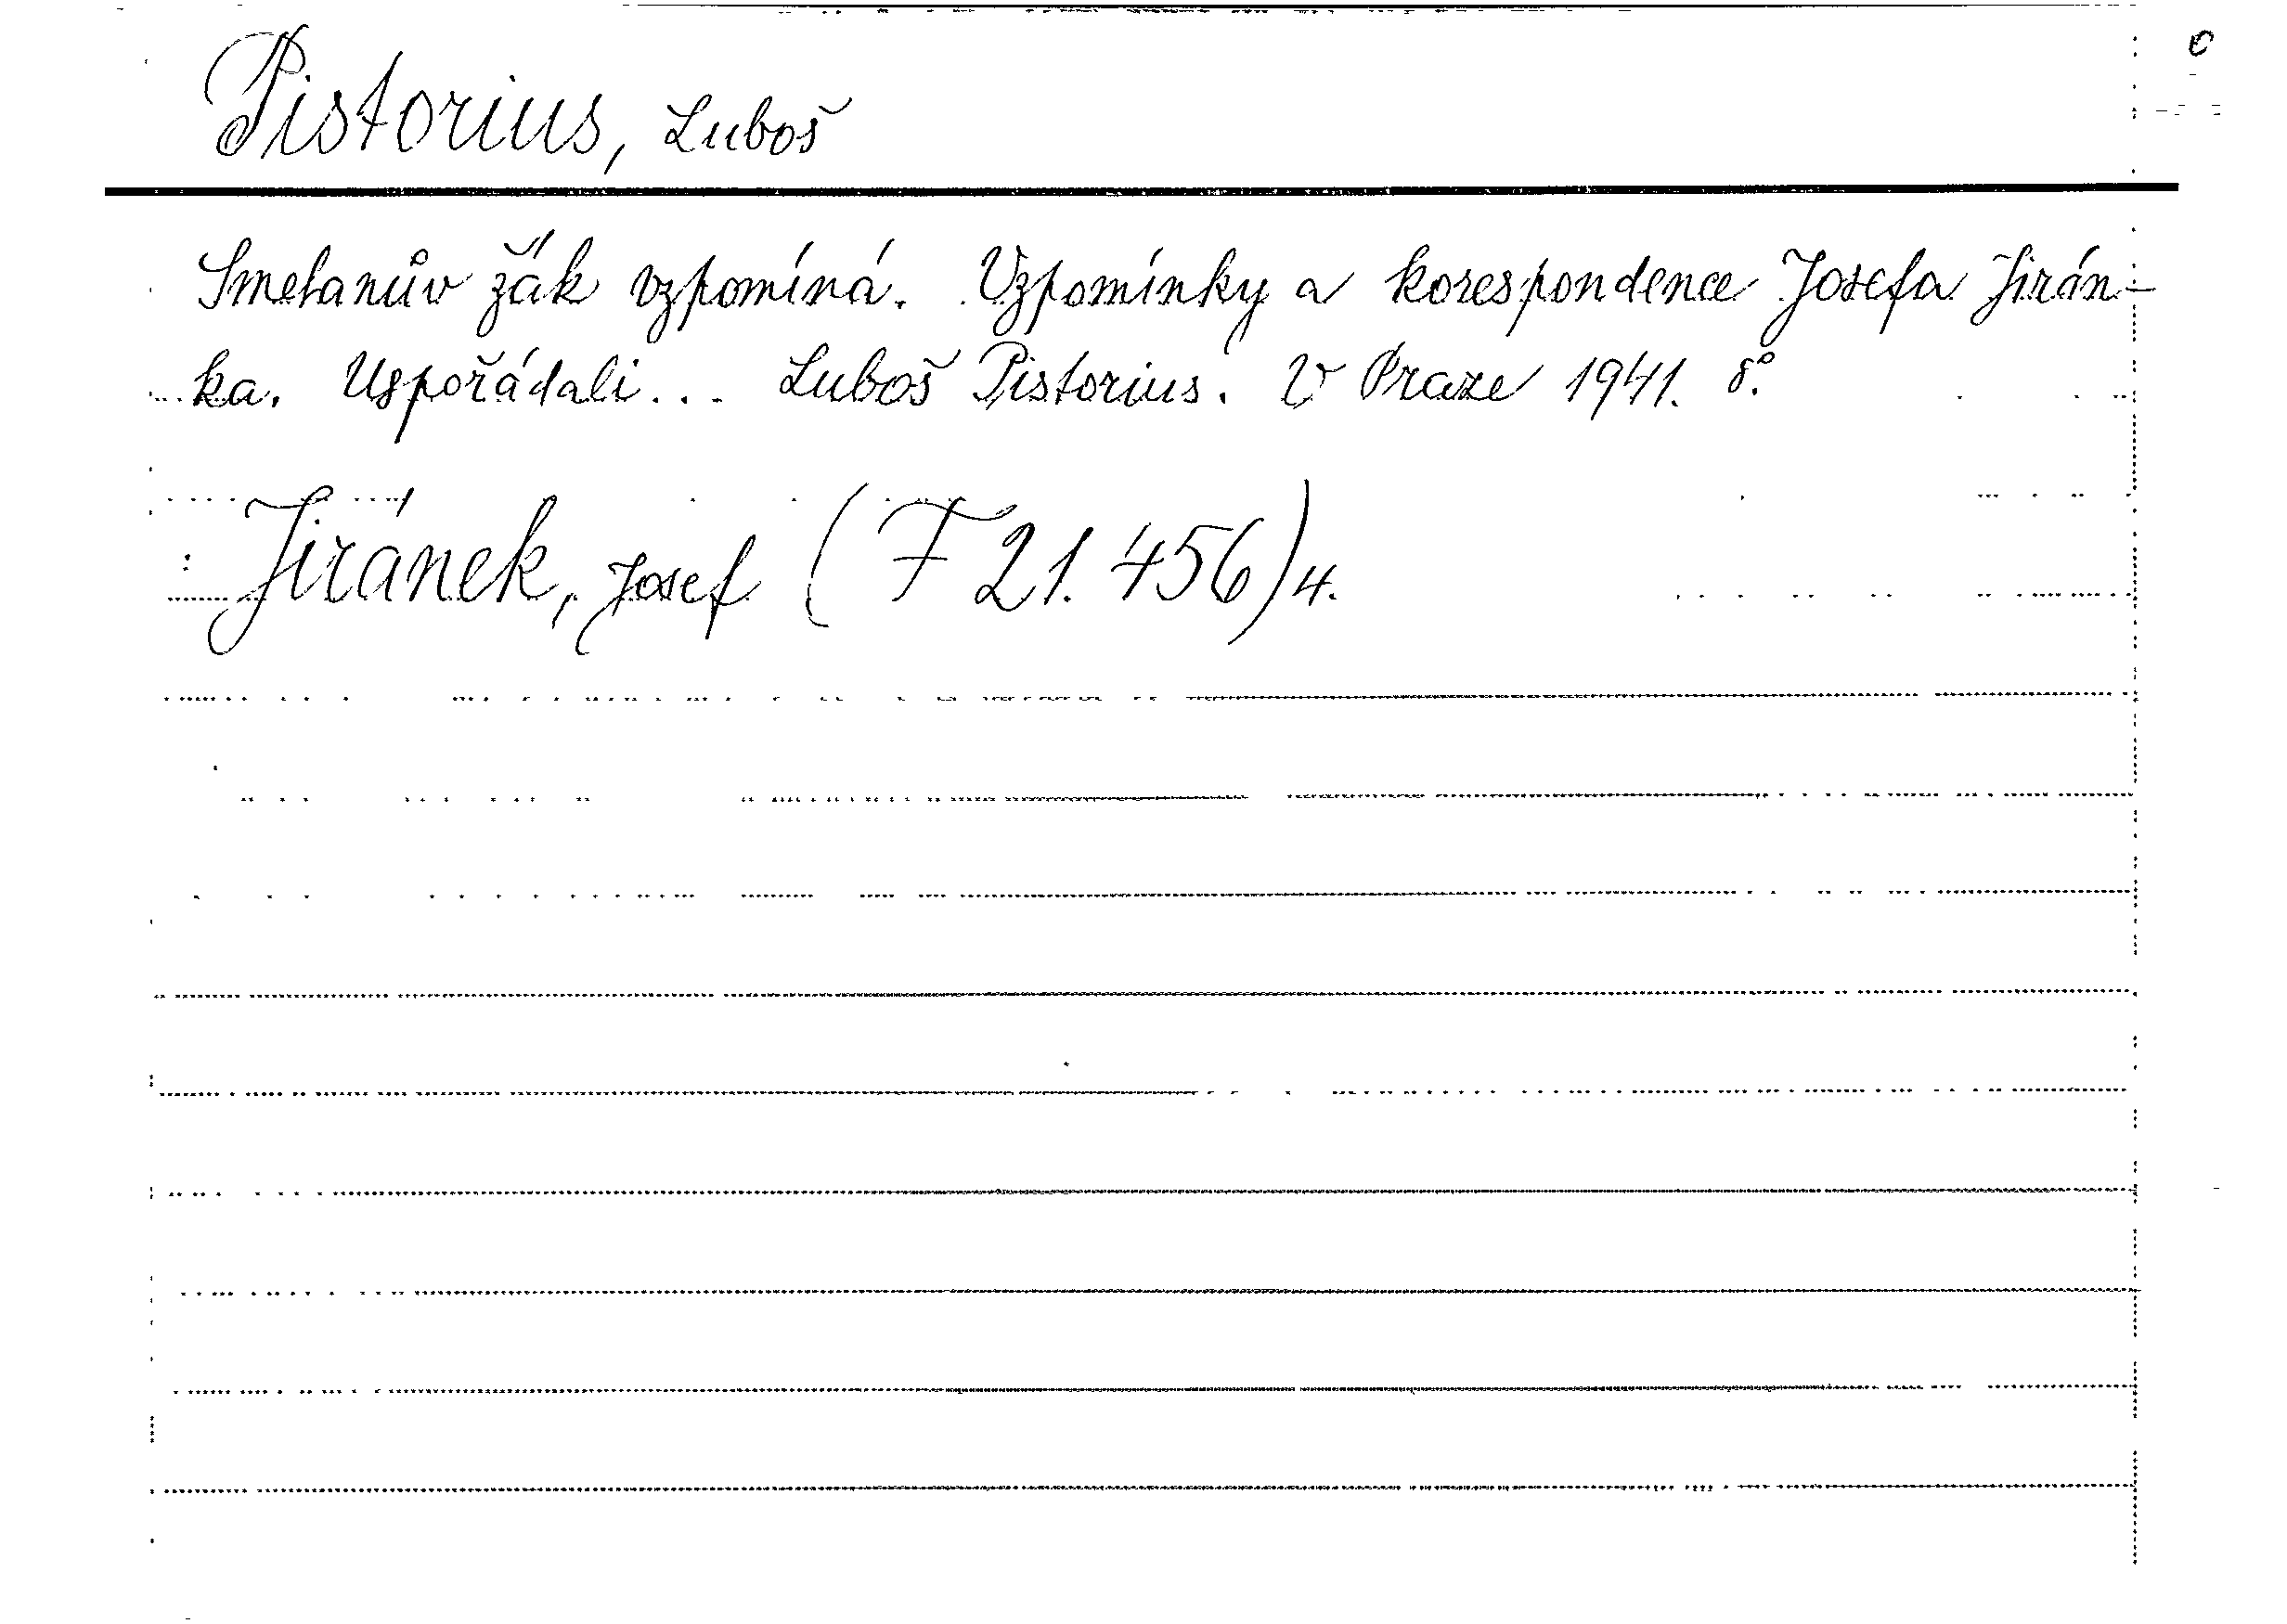 Pistorius, Luboš
Smetanův žák vzpomíná. Vzpomínky a korespondence Josefa Jirán-
ka. Uspořádali... Luboš Pistorius. V Praze 1941. 8°.
Jiránek, Josef (F 21.456) 4.